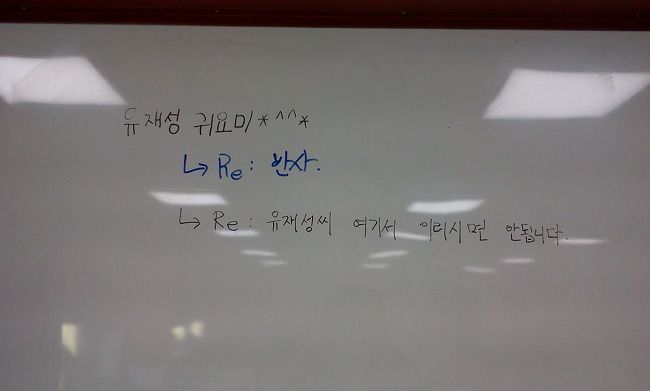 유재성 귀요미*^^*
↳ Re: 반사.
↳ Re: 유재성씨 여기서 이러시면 안됩니다.